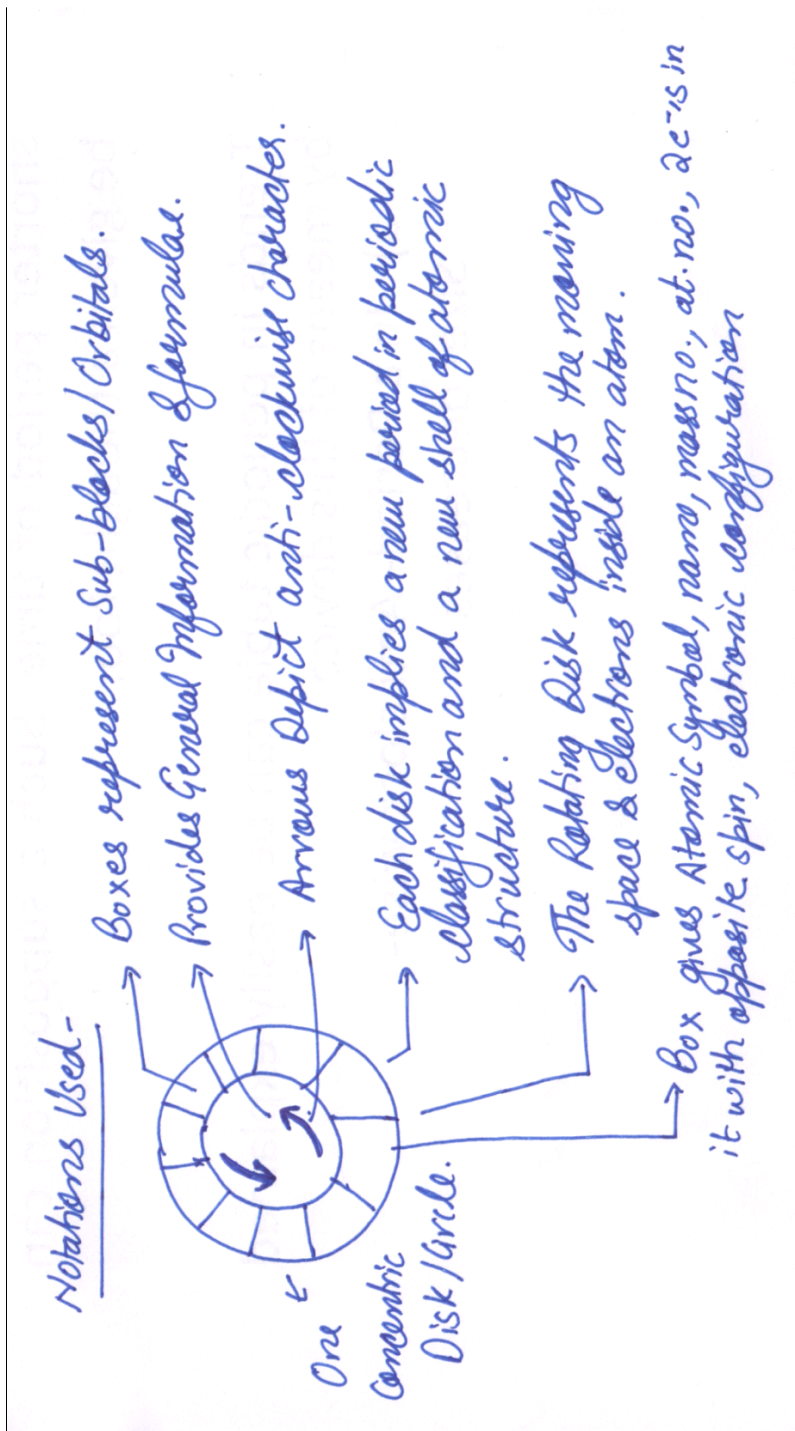 Notations Used-
Boxes represent Sub-blocks/Orbitals.
Provides General Information & formulae.
Arrows Depict anti-clockwise character.
Each disk implies a new period in periodic
classification and a new shell of atomic
structure.
The Rotating Disk represents the moving
space & electrons inside an atom.
Box gives Atomic Symbol, name, mass no., at. no., 2e-'s in
it with opposite spin, electronic configuration
One
Concentric
Disk/Circle.